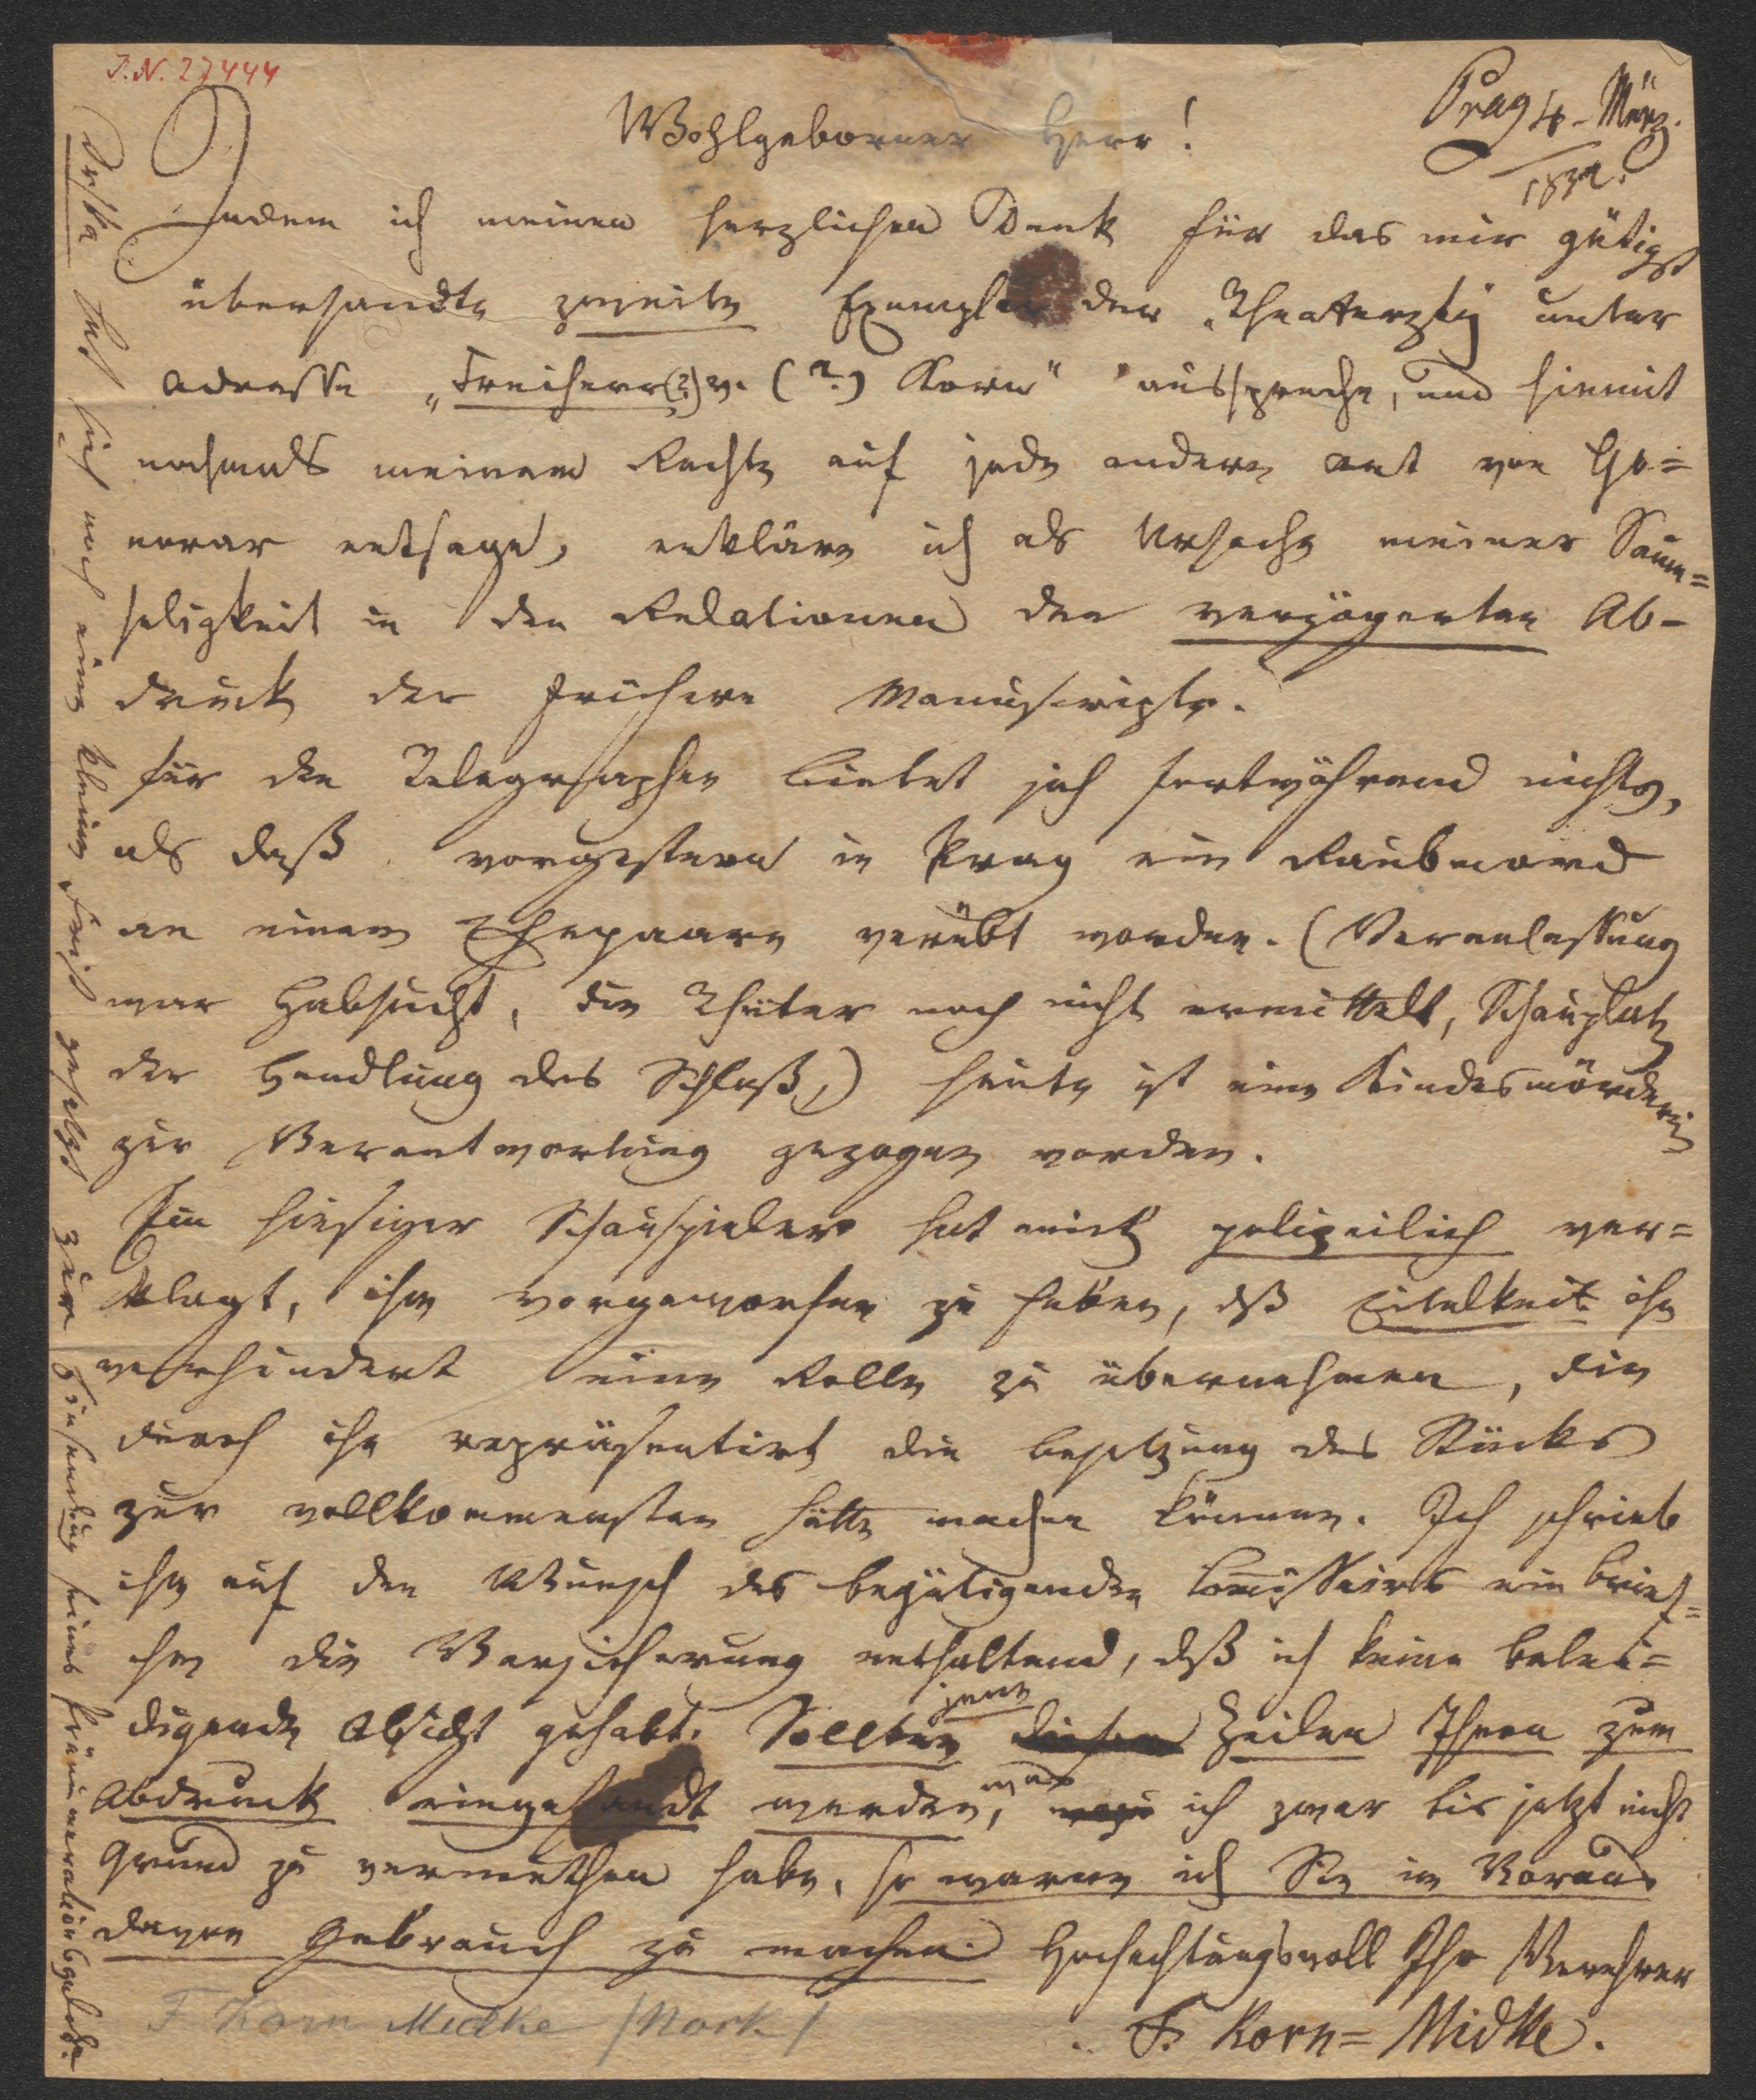 I.N. 27444
Prag 4. März.
1832.
Wohlgeborner Herr!
Indem ich meinen herzlichen Dank für das mir gütigst
übersandte zweite Exemplar der Theaterztg unter
Adresse „Freiherr (?) v. (?) Korn" ausspreche, und hiemit
nochmals meinem Rechte auf jede andere Art von Ho=
norar entsage, erkläre ich als Ursache meiner Saum=
seligkeit in den Relationen den verzögerten Ab-
druck der früheren Manuscripte.
Für die Telegraphen bietet sich fortwährend nichts,
als daß vorgestern in Prag ein Raubmord
an einem Ehepaare verübt worden. (Veranlassung
war Habsucht, die Thäter noch nicht ermittelt, Schauplatz
der Handlung das Schloß,) heute ist eine Kindesmörderin
zur Verantwortung gezogen worden.
Ein hiesiger Schauspieler hat mich polizeilich ver=
klagt, ihm vorgeworfen zu haben, dß Eitelkeit ihn
verhindert eine Rolle zu übernehmen, die
durch ihn repräsentirt die Besetzung des Stücks
zur vollkommensten hätte machen können. Ich schrieb
ihm auf den Wunsch des begütigenden Comissairs ein Brief=
chen die Versicherung enthaltend, dß ich keine belei=
digende Absicht gehabt. Sollten jene diesen Zeilen Ihnen zum
Abdruck eingesandt werden, was ich zwar bis jetzt nicht
Grund zu vermuthen habe, so warne ich Sie im Voraus
davon Gebrauch zu machen. Hochachtungsvoll Ihr Verehrer
F. Korn=Midke.
F. Korn Midke /Nork/
hat sich noch eine kleine Frist gesetzt zur Einsendung seines Pränumerationsgeldes.